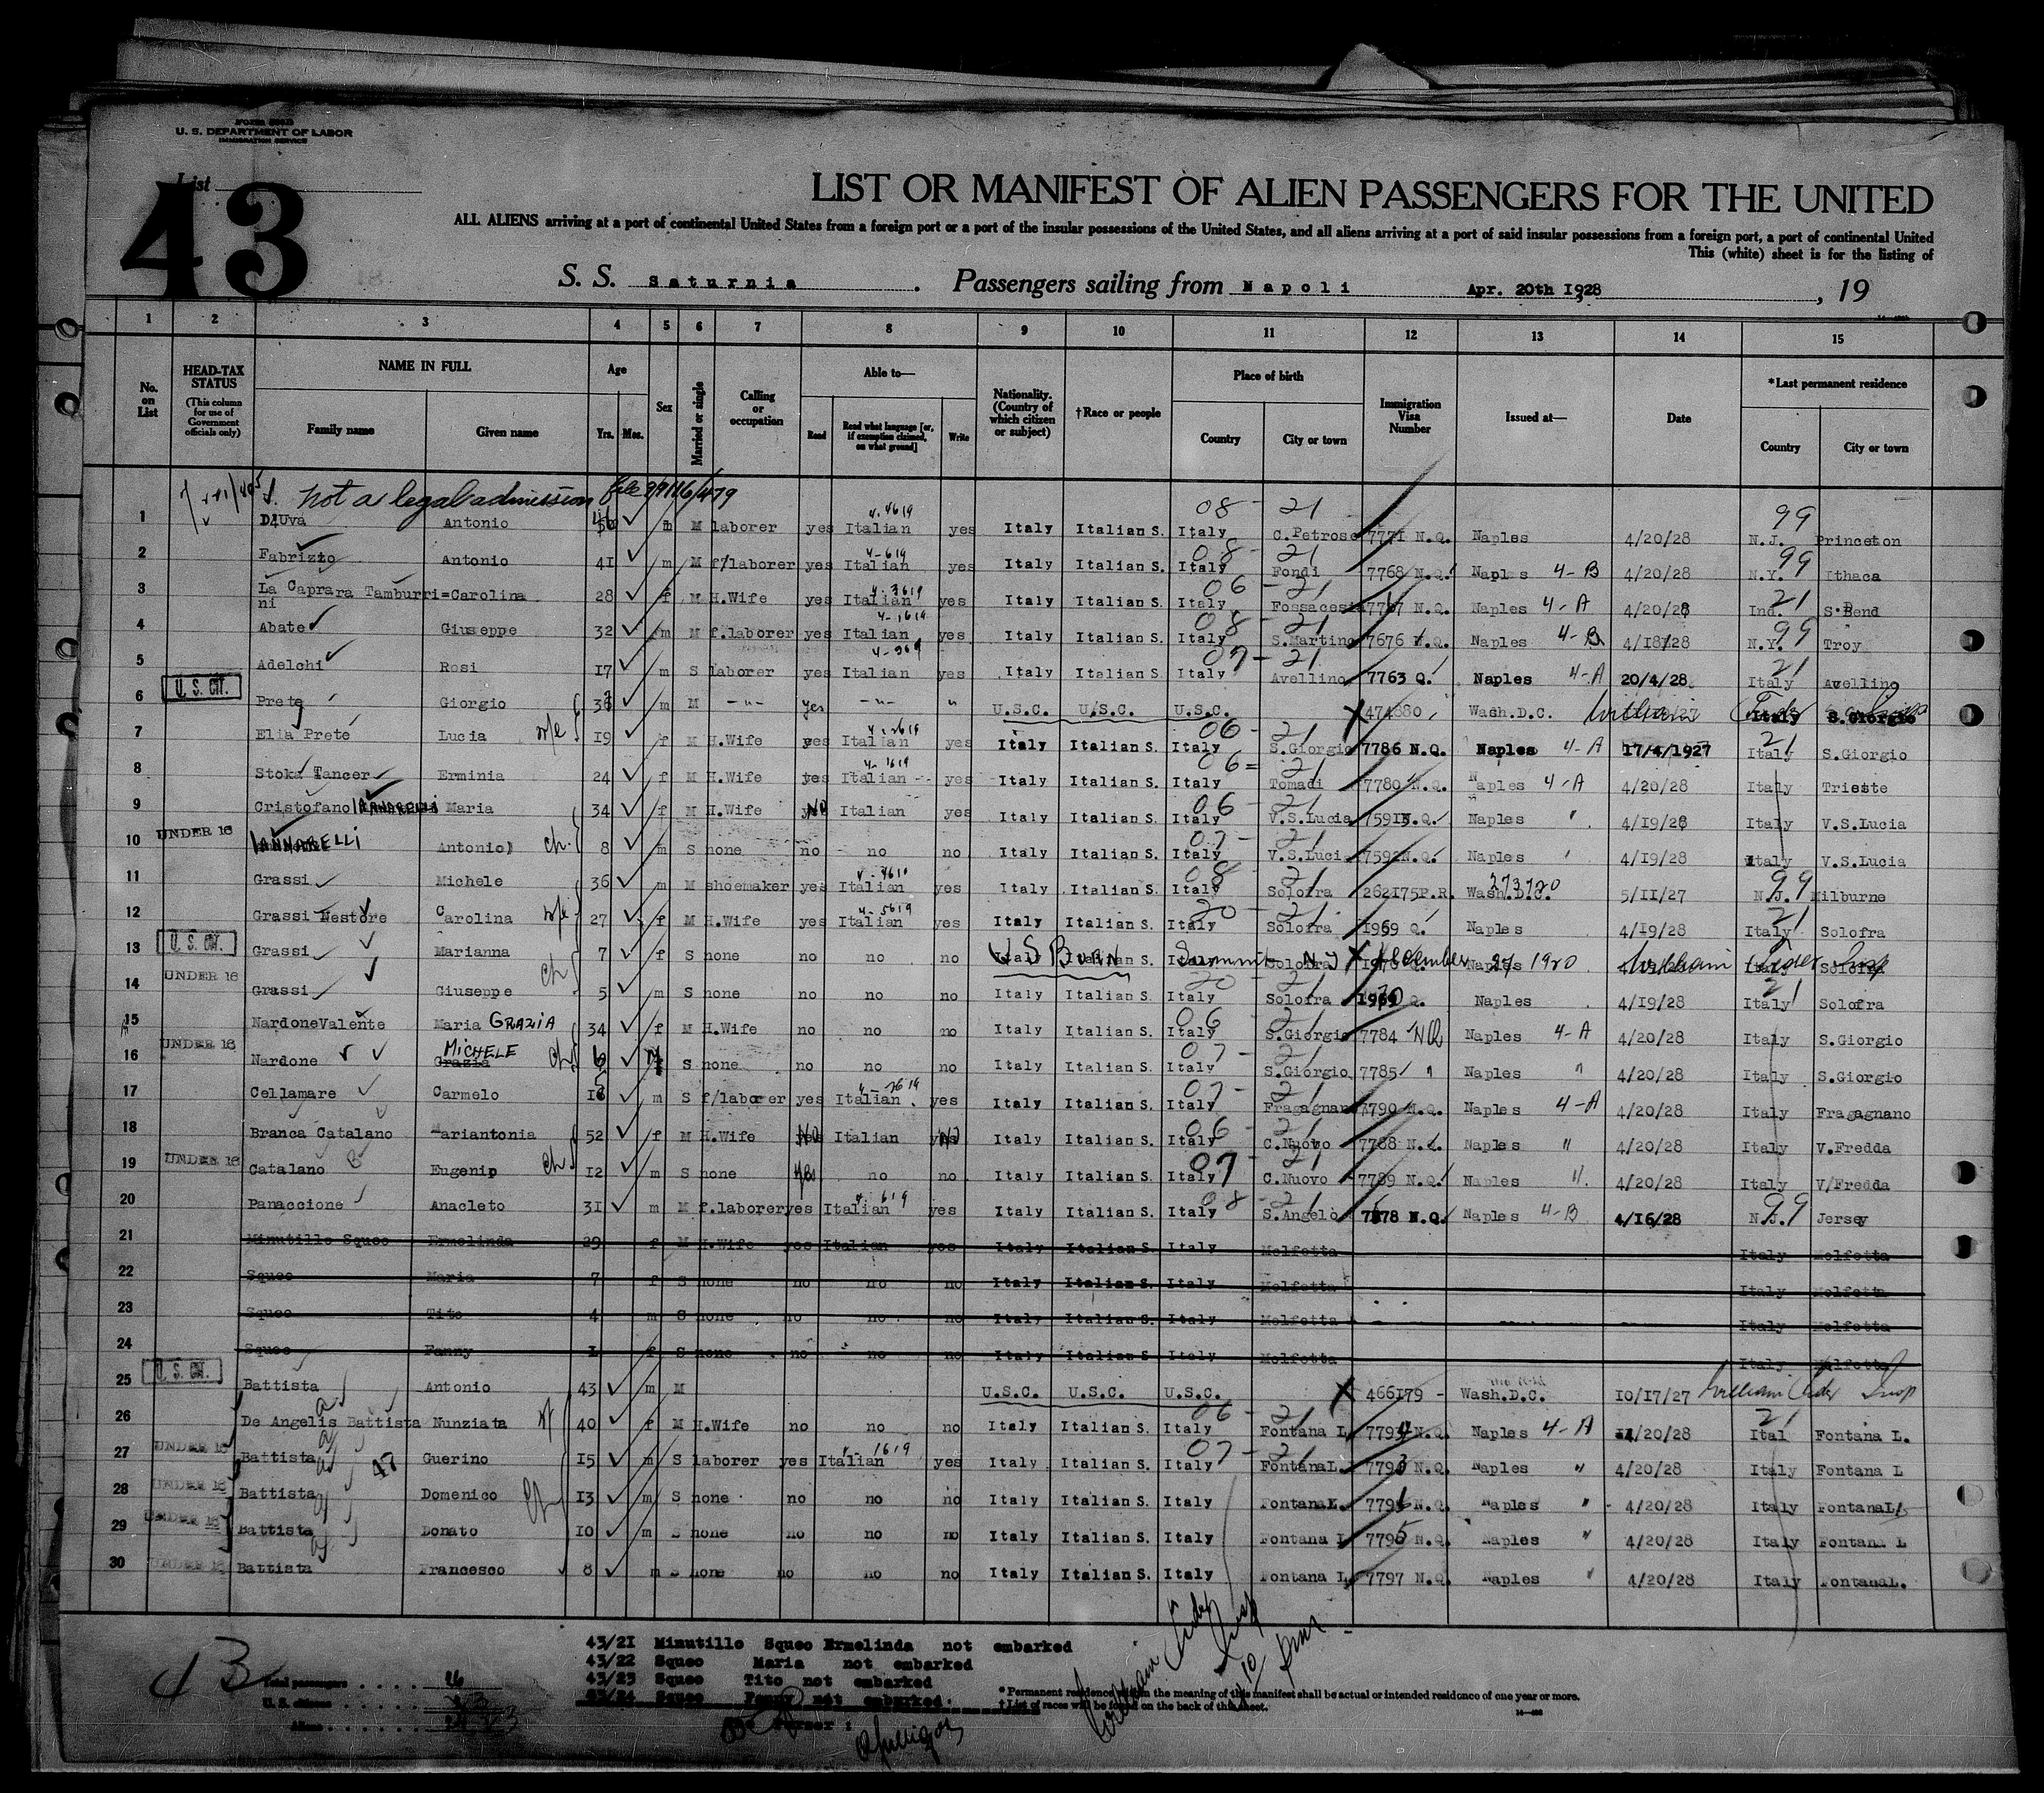 U. S. DEPARTMENT OF LABOR
IMMIGRATION SERVICE
List
43
LIST OR MANIFEST OF ALIEN PASSENGERS FOR THE UNITED
ALL ALIENS arriving at a port of continental United States from a foreign port or a port of the insular possessions of the United States, and all aliens arriving at a port of said insular possessions from a foreign port, a port of continental United
This (white) sheet is for the listing of
S. S. Saturnia . Passengers sailing from Napoli Apr. 20th 1928 , 19
1 2 3 4 5 6 7 8 9 10 11 12 13 14 15
No. on List
HEAD-TAX STATUS (This column for use of Government officials only)
NAME IN FULL Family name Given name
Age Yrs. Mos.
Sex
Married or single
Calling or occupation
Able to— Read Read what language [or, if exemption claimed, on what ground] Write
Nationality. (Country of which citizen or subject)
†Race or people
Place of birth Country City or town
Immigration Visa Number
Issued at—
Date
*Last permanent residence Country City or town
not a legal admission
1 D'Uva Antonio m M laborer yes Italian yes Italy Italian S. Italy C.Petroso 7771 N.Q. Naples 4/20/28 N.J. Princeton
2 Fabrizio Antonio 41 m M f/laborer yes Italian yes Italy Italian S. Italy Fondi 7768 N.Q. Naples 4-B 4/20/28 N.Y. Ithaca
3 La Caprara Tamburri=Carolina 28 f M H.Wife yes Italian yes Italy Italian S. Italy Fossacesia 7767 N.Q. Naples 4-A 4/20/28 Ind. S.Bend
ni
4 Abate Giuseppe 32 m M f.laborer yes Italian yes Italy Italian S. Italy S.Martino 7676 N.Q. Naples 4-B 4/18/28 N.Y. Troy
5 Adelchi Rosi 17 m S laborer yes Italian yes Italy Italian S. Italy Avellino 7763 Q. Naples 4-A 20/4/28 Italy Avellino
U. S. CIT.
6 Prete Giorgio m M -"- yes -"- " U.S.C. U.S.C. U.S.C. X 474880 Wash.D.C. Italy S.Giorgio
7 Elia Prete Lucia w/e 19 f M H.Wife yes Italian yes Italy Italian S. Italy S.Giorgio 7786 N.Q. Naples 4-A 17/4/1927 Italy S.Giorgio
8 Stoka Tancer Erminia 24 f M H.Wife yes Italian yes Italy Italian S. Italy Tomadi 7780 N.Q. Naples 4-A 4/20/28 Italy Trieste
9 Cristofano IANNARELLI Maria 34 f M H.Wife No Italian yes Italy Italian S. Italy V.S.Lucia 7591 N.Q. Naples " 4/19/28 Italy V.S.Lucia
UNDER 16
10 IANNARELLI Antonio ch. 8 m S none no no no Italy Italian S. Italy V.S.Luci 7592 N.Q. Naples " 4/19/28 Italy V.S.Lucia
11 Grassi Michele 36 m M shoemaker yes Italian yes Italy Italian S. Italy Solofra 262175P.R. Wash.D.C. 273720 5/11/27 N.J. Milburne
12 Grassi Nestore Carolina w/e 27 f M H.Wife yes Italian yes Italy Italian S. Italy Solofra 1969 Q. Naples 4/19/28 Italy Solofra
U. S. CIT.
13 Grassi Marianna 7 f S none no no no U S Born Summit N J X November 27 1920 William
UNDER 16
14 Grassi Giuseppe ch 5 m S none no no no Italy Italian S. Italy Solofra Q. Naples 4/19/28 Italy Solofra
15 NardoneValente Maria GRAZIA 34 f M H.Wife no no no Italy Italian S. Italy S.Giorgio 7784 NQ Naples 4-A 4/20/28 Italy S.Giorgio
UNDER 16
16 Nardone MICHELE Grazia ch. 6 M S none no no no Italy Italian S. Italy S.Giorgio 7785 " Naples " 4/20/28 Italy S.Giorgio
17 Cellamare Carmelo m S f/laborer yes Italian yes Italy Italian S. Italy Fragagnano 7790 N.Q. Naples 4-A 4/20/28 Italy Fragagnano
18 Branca Catalano Mariantonia 52 f M H.Wife No Italian No Italy Italian S. Italy C.Nuovo 7788 N.Q. Naples " 4/20/28 Italy V.Fredda
UNDER 16
19 Catalano Eugenio ch 12 m S none yes no no Italy Italian S. Italy C.Nuovo 7789 N.Q. Naples " 4/20/28 Italy V/Fredda
20 Panaccione Anacleto 31 m M f.laborer yes Italian yes Italy Italian S. Italy S.Angelo N.Q. Naples 4-B 4/16/28 N.J. Jersey
21 Minutillo Squeo Ermelinda 29 f M H.Wife yes Italian yes Italy Italian S. Italy Molfetta Italy Molfetta
22 Squeo Maria 7 f S none no no no Italy Italian S. Italy Molfetta Italy Molfetta
23 Squeo Tito 4 m S none no no no Italy Italian S. Italy Molfetta Italy Molfetta
24 Squeo Fanny f S none no no no Italy Italian S Italy Molfetta Italy Molfetta
U. S. CIT.
25 Battista Antonio 43 m M U.S.C. U.S.C. U.S.C. X 466179 - Wash.D.C. 10/17/27 William
26 De Angelis Battista Nunziata 40 f M H.Wife no no no Italy Italian S. Italy Fontana L 7794 N.Q. Naples 4-A /20/28 Ital Fontana L.
UNDER 16
27 Battista Guerino 15 m S laborer yes Italian yes Italy Italian S. Italy FontanaL. 7793 N.Q. Naples " 4/20/28 Italy Fontana L
UNDER 16
28 Battista Domenico 13 m S none no no no Italy Italian S. Italy FontanaL. 7796 N.Q. Naples " 4/20/28 Italy FontanaL
UNDER 16
29 Battista Donato 10 m S none no no no Italy Italian S. Italy Fontana L 7795 N.Q. Naples " 4/20/28 Italy Fontana L
UNDER 16
30 Battista Francesco 8 m S none no no no Italy Italian S. Italy Fontana L, 7797 N.Q. Naples " 4/20/28 Italy FontanaL.
43/21 Minutillo Squeo Ermelinda not embarked
43/22 Squeo Maria not embarked
43/23 Squeo Tito not embarked
43/24 Squeo Fanny not embarked.
43
Total passengers 26
U. S. citizens
Aliens
* Permanent residence within the meaning of this manifest shall be actual or intended residence of one year or more.
† List of races will be found on the back of this sheet.